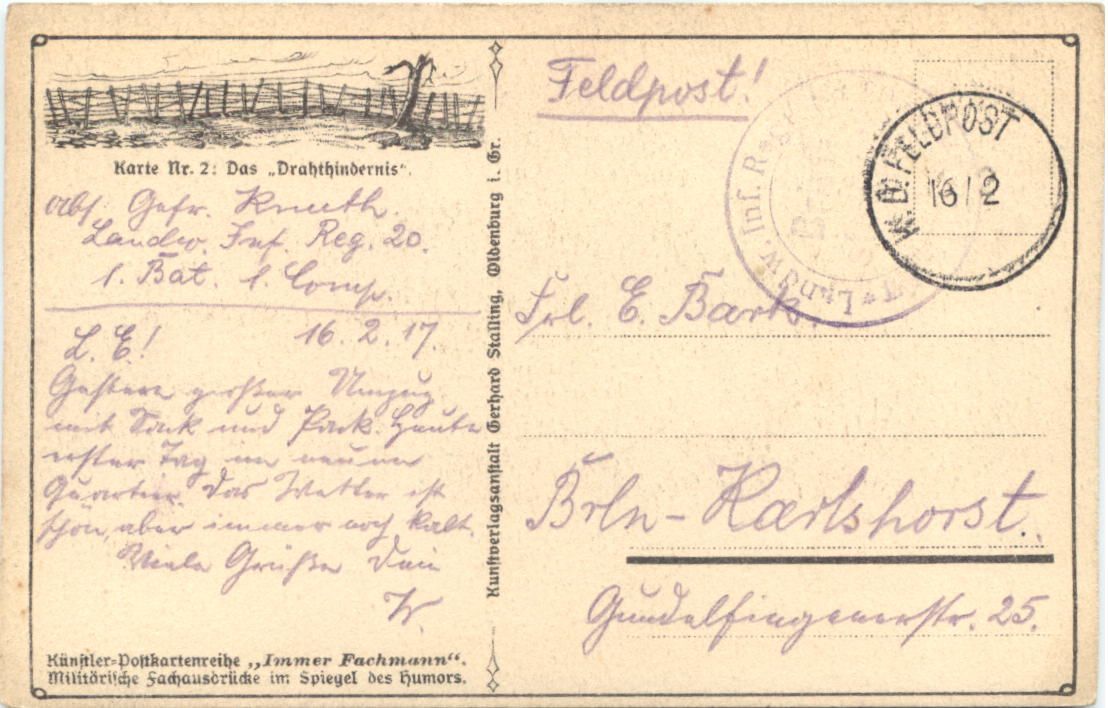 Karte Nr. 2: Das „Drahthindernis“.
Abs. Gefr. Knuth.
Landw. Inf. Reg. 20.
1. Bat. 1. Comp.
16.2.17.
L. E!
Gestern großer Umzug
mit Sack und Pack. Heute
erster Tag im neuen
Quartier. Das Wetter ist
schön, aber immer noch kalt.
Viele Grüße Dein
W.
Künstler-Postkartenreihe „Immer Fachmann“.
Militörische Fachausdrücke im Spiegel des Humors.
Kunstverlagsanstalt Gerhard Stalling, Oldenburg i. Gr.
Feldpost!
K.D. FELDPOST
16/2
Landw. Inf. R
Frl. E. Bark.
Brln-Karlshorst.
Gundelfingenerstr. 25.